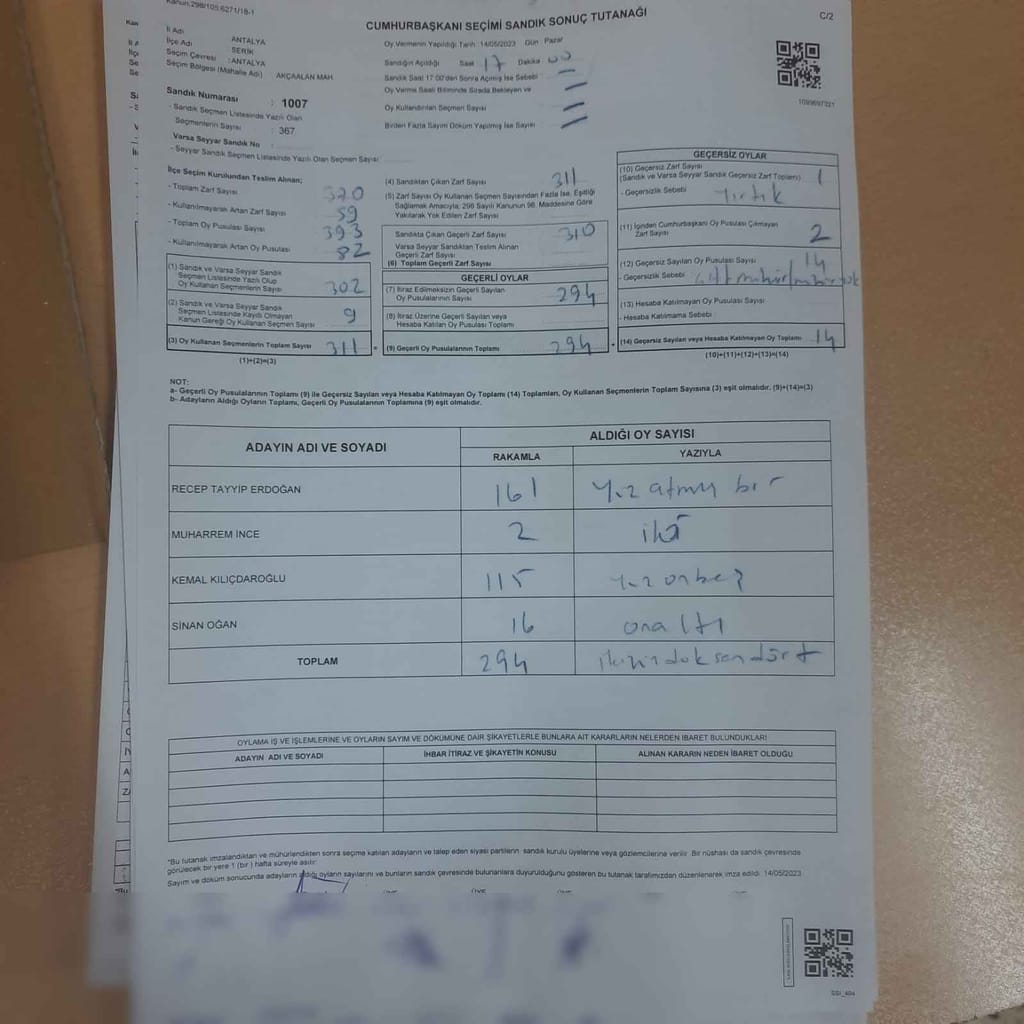 Kanun.298/105.6271/18-1
CUMHURBAŞKANI SEÇİMİ SANDIK SONUÇ TUTANAĞI
C/2
İl Adı ANTALYA
İlçe Adı SERİK
Seçim Çevresi : ANTALYA
Seçim Bölgesi (Mahalle Adı) AKÇAALAN MAH.
Sandık Numarası : 1007
- Sandık Seçmen Listesinde Yazılı Olan
Seçmenlerin Sayısı : 367
Varsa Seyyar Sandık No :
- Seyyar Sandık Seçmen Listesinde Yazılı Olan Seçmen Sayısı
Oy Vermenin Yapıldığı Tarih :14/05/2023 Gün : Pazar
Sandığın Açıldığı Saat 17 Dakika 00
Sandık Saat 17:00'den Sonra Açılmış İse Sebebi
Oy Verme Saati Bitiminde Sırada Bekleyen ve
Oy Kullandırılan Seçmen Sayısı
Birden Fazla Sayım Döküm Yapılmış İse Sayısı
1099697321
İlçe Seçim Kurulundan Teslim Alınan;
- Toplam Zarf Sayısı 370
- Kullanılmayarak Artan Zarf Sayısı 59
- Toplam Oy Pusulası Sayısı 393
- Kullanılmayarak Artan Oy Pusulası 82
(1) Sandık ve Varsa Seyyar Sandık
Seçmen Listesinde Yazılı Olup
Oy Kullanan Seçmenlerin Sayısı 302
(2) Sandık ve Varsa Seyyar Sandık
Seçmen Listesinde Kayıtlı Olmayan
Kanun Gereği Oy Kullanan Seçmen Sayısı 9
(3) Oy Kullanan Seçmenlerin Toplam Sayısı 311
(1)+(2)=(3)
(4) Sandıktan Çıkan Zarf Sayısı 311
(5) Zarf Sayısı Oy Kullanan Seçmen Sayısından Fazla İse, Eşitliği
Sağlamak Amacıyla; 298 Sayılı Kanunun 98. Maddesine Göre
Yakılarak Yok Edilen Zarf Sayısı
Sandıkta Çıkan Geçerli Zarf Sayısı 310
Varsa Seyyar Sandıktan Teslim Alınan
Geçerli Zarf Sayısı
(6) Toplam Geçerli Zarf Sayısı
GEÇERLİ OYLAR
(7) İtiraz Edilmeksizin Geçerli Sayılan
Oy Pusulalarının Sayısı 294
(8) İtiraz Üzerine Geçerli Sayılan veya
Hesaba Katılan Oy Pusulası Toplamı
= (9) Geçerli Oy Pusulalarının Toplamı 294
GEÇERSİZ OYLAR
(10) Geçersiz Zarf Sayısı
(Sandık ve Varsa Seyyar Sandık Geçersiz Zarf Toplamı) 1
- Geçersizlik Sebebi Yırtık
(11) İçinden Cumhurbaşkanı Oy Pusulası Çıkmayan
Zarf Sayısı 2
(12) Geçersiz Sayılan Oy Pusulası Sayısı 14
- Geçersizlik Sebebi çift mühür/mühür yok
(13) Hesaba Katılmayan Oy Pusulası Sayısı
- Hesaba Katılmama Sebebi
+ (14) Geçersiz Sayılan veya Hesaba Katılmayan Oy Toplamı 14
(10)+(11)+(12)+(13)=(14)
NOT:
a- Geçerli Oy Pusulalarının Toplamı (9) ile Geçersiz Sayılan veya Hesaba Katılmayan Oy Toplamı (14) Toplamları, Oy Kullanan Seçmenlerin Toplam Sayısına (3) eşit olmalıdır. (9)+(14)=(3)
b- Adayların Aldığı Oyların Toplamı, Geçerli Oy Pusulalarının Toplamına (9) eşit olmalıdır.
ADAYIN ADI VE SOYADI
ALDIĞI OY SAYISI
RAKAMLA YAZIYLA
RECEP TAYYİP ERDOĞAN 161 Yüz atmış bir
MUHARREM İNCE 2 iki
KEMAL KILIÇDAROĞLU 115 Yüz onbeş
SİNAN OĞAN 16 onaltı
TOPLAM 294 ikiyüzdoksandört
OYLAMA İŞ VE İŞLEMLERİNE VE OYLARIN SAYIM VE DÖKÜMÜNE DAİR ŞİKAYETLERLE BUNLARA AİT KARARLARIN NELERDEN İBARET BULUNDUKLARI
ADAYIN ADI VE SOYADI İHBAR İTİRAZ VE ŞİKAYETİN KONUSU ALINAN KARARIN NEDEN İBARET OLDUĞU
*Bu tutanak imzalandıktan ve mühürlendikten sonra seçime katılan adayların ve talep eden siyasi partilerin sandık kurulu üyelerine veya gözlemcilerine verilir. Bir nüshası da sandık çevresinde
görülecek bir yere 1 (bir) hafta süreyle asılır.
Sayım ve döküm sonucunda adayların aldığı oyların sayılarını ve bunların sandık çevresinde bulunanlara duyurulduğunu gösteren bu tutanak tarafımızdan düzenlenerek imza edildi. 14/05/2023